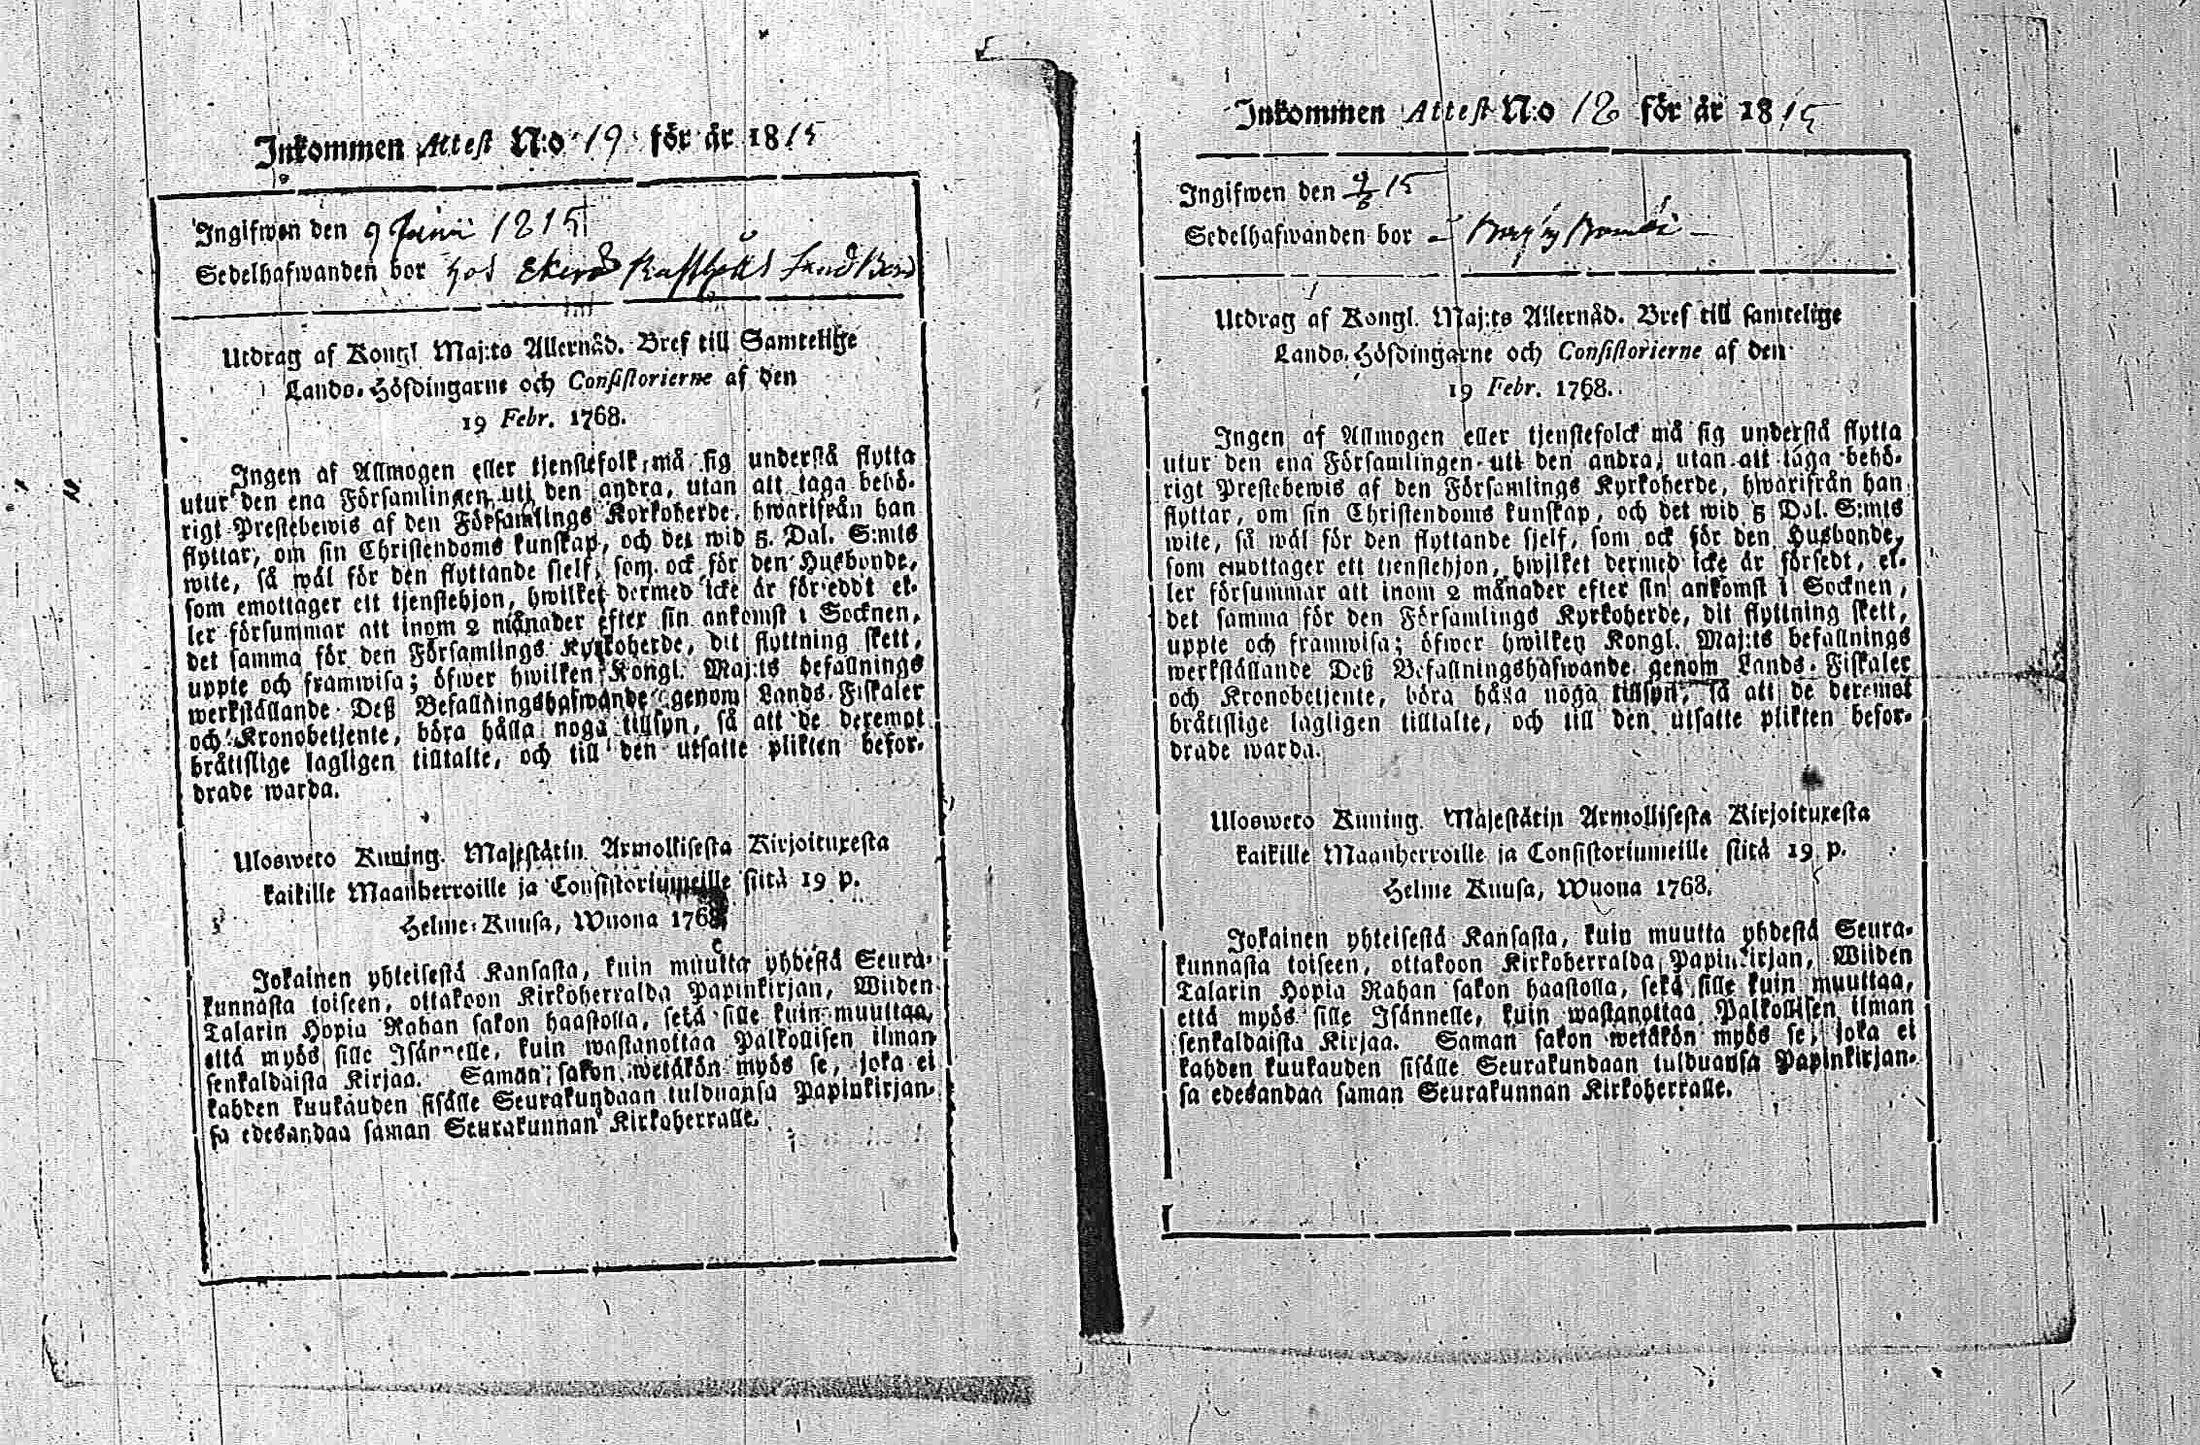 Inkommen Attest N:o 19 för år 1815
Ingifwen den 9 Junii 1815
Sedelhafwanden bor hos
Utdrag af Kongl Maj:ts Allernåd. Bref till Samtelige
Lands-Höfdingarne och Consistorierne af den
19 Febr. 1768.
Ingen af Allmogen eller tjenstefolk må sig understå flytta
utur den ena Församlingen uti den andra, utan att taga behö-
rigt Prestebewis af den Församlings Kyrkoherde, hwarifrån han
flyttar, om sin Christendoms kunskap, och det wid 5. Dal. S:mts
wite, så wäl för den flyttande sielf, som ock för den Husbonde,
som emottager ett tjenstehjon, hwilket dermed icke är försedt el-
ler försummar att inom 2 månader efter sin ankomst i Socknen,
det samma för den Församlings Kyrkoherde, dit flyttning skett,
uppte och framwisa; öfwer hwilken Kongl. Maj:ts befallnings
werkställande Deß Befallningshafwande genom Lands-Fiskaler
och Kronobetjente, böra hålla noga tillsyn, så att de deremot
bråtislige lagligen tilltalte, och till den utsatte plikten befor-
drade warda.
Ulosweto Kuning. Majestätin Armollisesta Kirjoituxesta
kaikille Maanherroille ja Consistoriumeille siitä 19 p.
Helme-Kuusa, Wuona 1768.
Jokainen yhteisestä Kansasta, kuin muutta yhdestä Seura-
kunnasta toiseen, ottakoon Kirkoherralda Papinkirjan, Wiiden
Talarin Hopia Rahan sakon haastolla, sekä sille kuin muuttaa,
että myös sille Isännelle, kuin wastanottaa Palkollisen ilman
senkaldaista Kirjaa. Saman sakon wetäkön myös se, joka ei
kahden kuukauden sisälle Seurakundaan tulduansa Papinkirjan-
sa edesandaa saman Seurakunnan Kirkoherralle.
Inkommen Attest N:o 18 för år 1815
Ingifwen den 9/6 15
Sedelhafwanden bor
Utdrag af Kongl. Maj:ts Allernåd. Bref till samtelige
Lands-Höfdingarne och Consistorierne af den
19 Febr. 1768.
Ingen af Allmogen eller tjenstefolck må sig understå flytta
utur den ena Församlingen uti den andra, utan att taga behö-
rigt Prestebewis af den Församlings Kyrkoherde, hwarifrån han
flyttar, om sin Christendoms kunskap, och det wid 5 Dal. S:mts
wite, så wäl för den flyttande sjelf, som ock för den Husbonde,
som emottager ett tjenstehjon, hwilket dermed icke är försedt, el-
ler försummar att inom 2 månader efter sin ankomst i Socknen,
det samma för den Församlings Kyrkoherde, dit flyttning skett,
uppte och framwisa; öfwer hwilken Kongl. Maj:ts befallnings
werkställande Deß Befallningshafwande genom Lands-Fiskaler
och Kronobetjente, böra hålla noga tillsyn, så att de deremot
bråtislige lagligen tilltalte, och till den utsatte plikten befor-
drade warda.
Ulosweto Kuning. Majestätin Armollisesta Kirjoituxesta
kaikille Maanherroille ja Consistoriumeille siitä 19 p.
Helme Kuusa, Wuona 1768.
Jokainen yhteisestä Kansasta, kuin muutta yhdestä Seura-
kunnasta toiseen, ottakoon Kirkoherralda Papinkirjan, Wiiden
Talarin Hopia Rahan sakon haastolla, sekä sille kuin muuttaa,
että myös sille Isännelle, kuin wastanottaa Palkollisen ilman
senkaldaista Kirjaa. Saman sakon wetäkön myös se, joka ei
kahden kuukauden sisälle Seurakundaan tulduansa Papinkirjan-
sa edesandaa saman Seurakunnan Kirkoherralle.